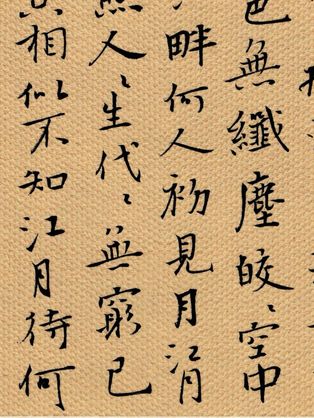 色無纖塵皎〻空中
畔何人初見月江月
人〻生代〻無窮已
相似不知江月待何